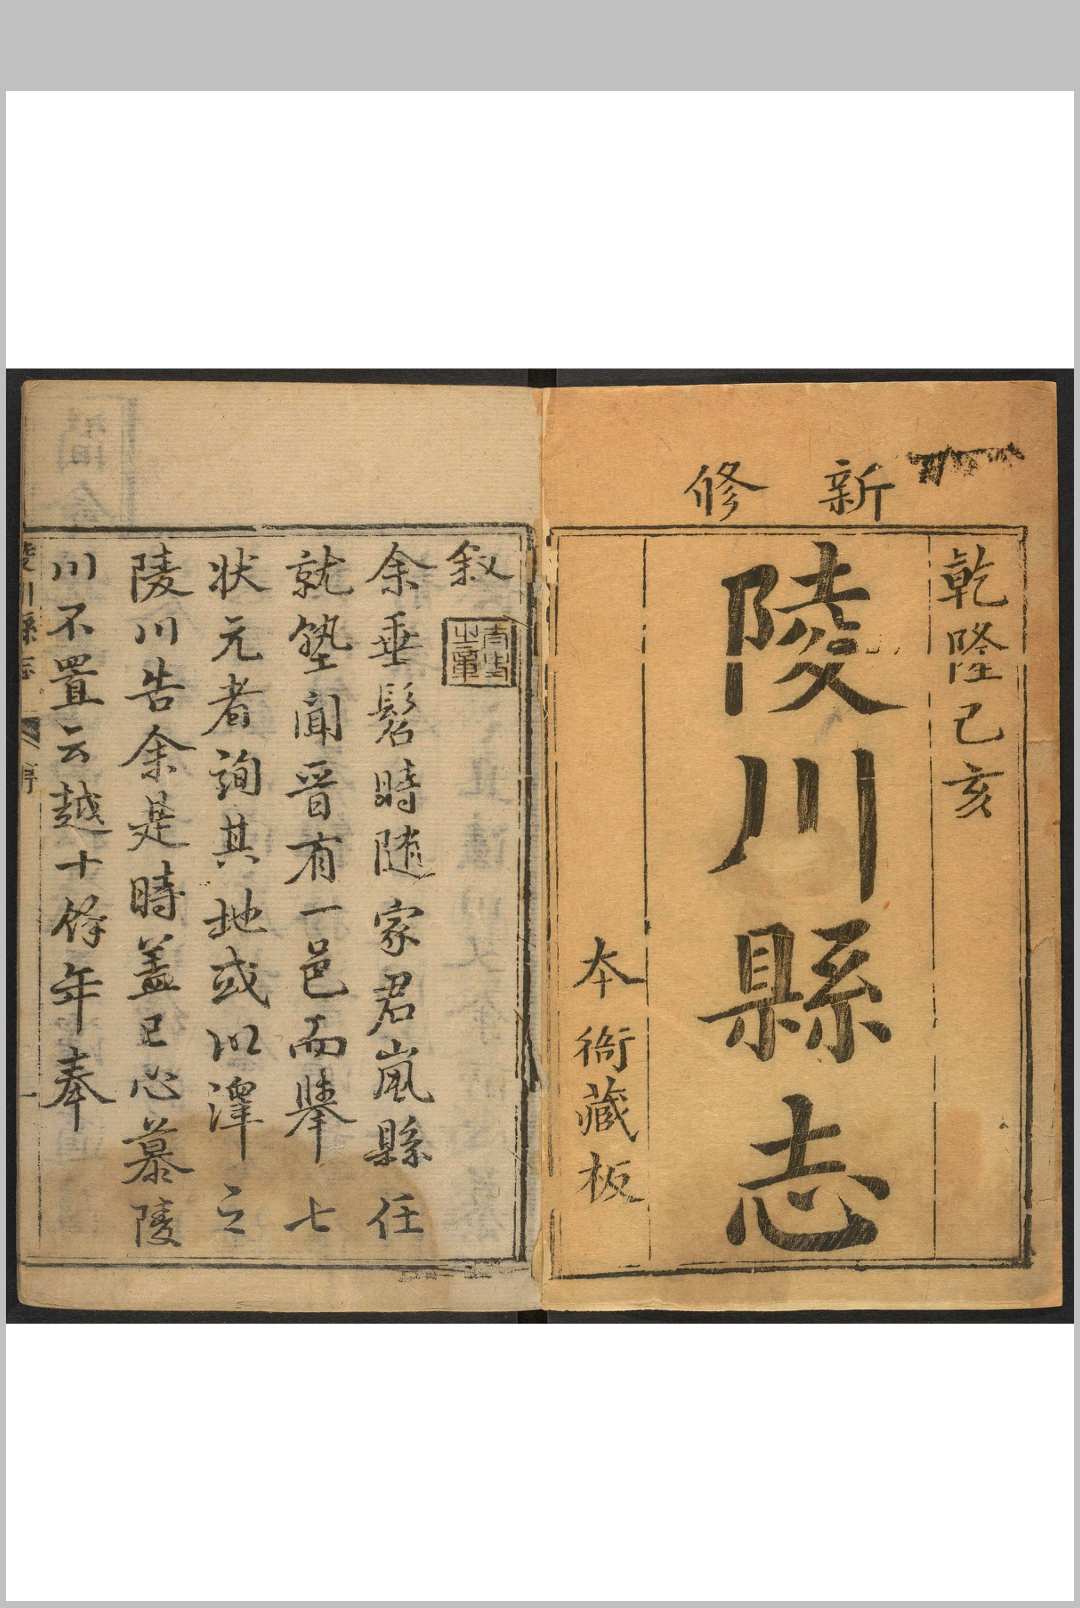 新修
乾隆己亥
陵川縣志
本衙藏板
叙
余垂髫時随家君嵐縣任
就塾聞晋有一邑而舉七
狀元者詢其地或以澤之
陵川告余是時盖已心慕陵
川不置云越十餘年奉
陵川縣志
序
一